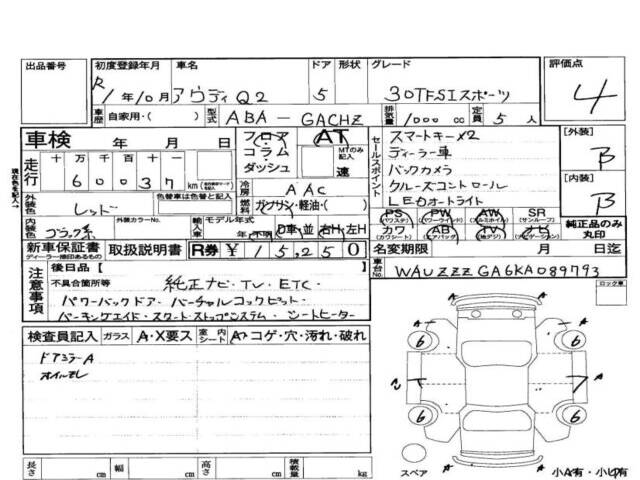 出品番号 初度登録年月 車名 ドア 形状 グレード 評価点
R1年10月 アウディQ2 5 30TFSIスポーツ 4
車歴 自家用・( ) 型式 ABA-GACHZ 排気量 1000cc 定員 5人
車検 年 月 日 フロア コラム・ダッシュ AT MTのみ記入 速
走行 十 万 千 百 十 一 60037 km
冷房 AAC
燃料 ガソリン・軽油・( )
セールスポイント
スマートキーX2
ディーラー車
バックカメラ
クルーズコントロール
LEDオートライト
[外装] B
[内装] B
現在色を記入
外装色 レッド 色替車は色替と記入
内装色 ブラック系 外装カラーNo. 輸入車 モデル年式 年・不明 D車 並 右H・左H
PS (パワステ) PW (パワーウィンド) AW (アルミホイル) SR (サンルーフ)
カワ (カワシート) AB (エアバッグ) TV (地デジ) ナビ (ナビゲーション)
純正品のみ丸印
新車保証書 ディーラー捺印あるもの 取扱説明書 R券 ¥15,250 名変期限 月 日迄
注意事項 後日品[ ]
不具合箇所等 純正ナビ・TV・ETC・
パワーバックドア・バーチャルコックピット・
パーキングエイド・スタートストップシステム・シートヒーター
車台No. WAUZZZGA6KA089793
ロック車
検査員記入 ガラス A・X要ス 室内シート A・コゲ・穴・汚れ・破れ
ドアミラーA
オイルモレ
6 6
6 6
A A
スペア
小A有・小U有
長さ cm 幅 cm 高さ cm 積載量 kg